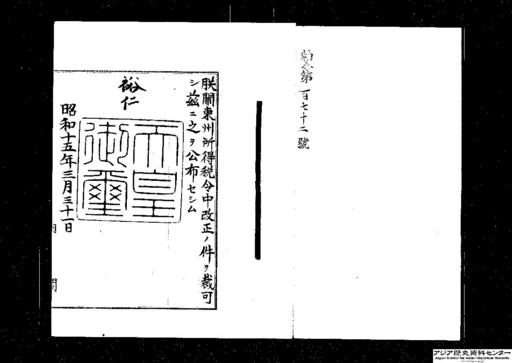 勅令第百七十二號
朕關東州所得税令中改正ノ件ヲ裁可
シ茲ニ之ヲ公布セシム
裕仁
天皇御璽
昭和十五年三月三十一日
内閣
アジア歴史資料センター
Japan Center for Asian Historical Records